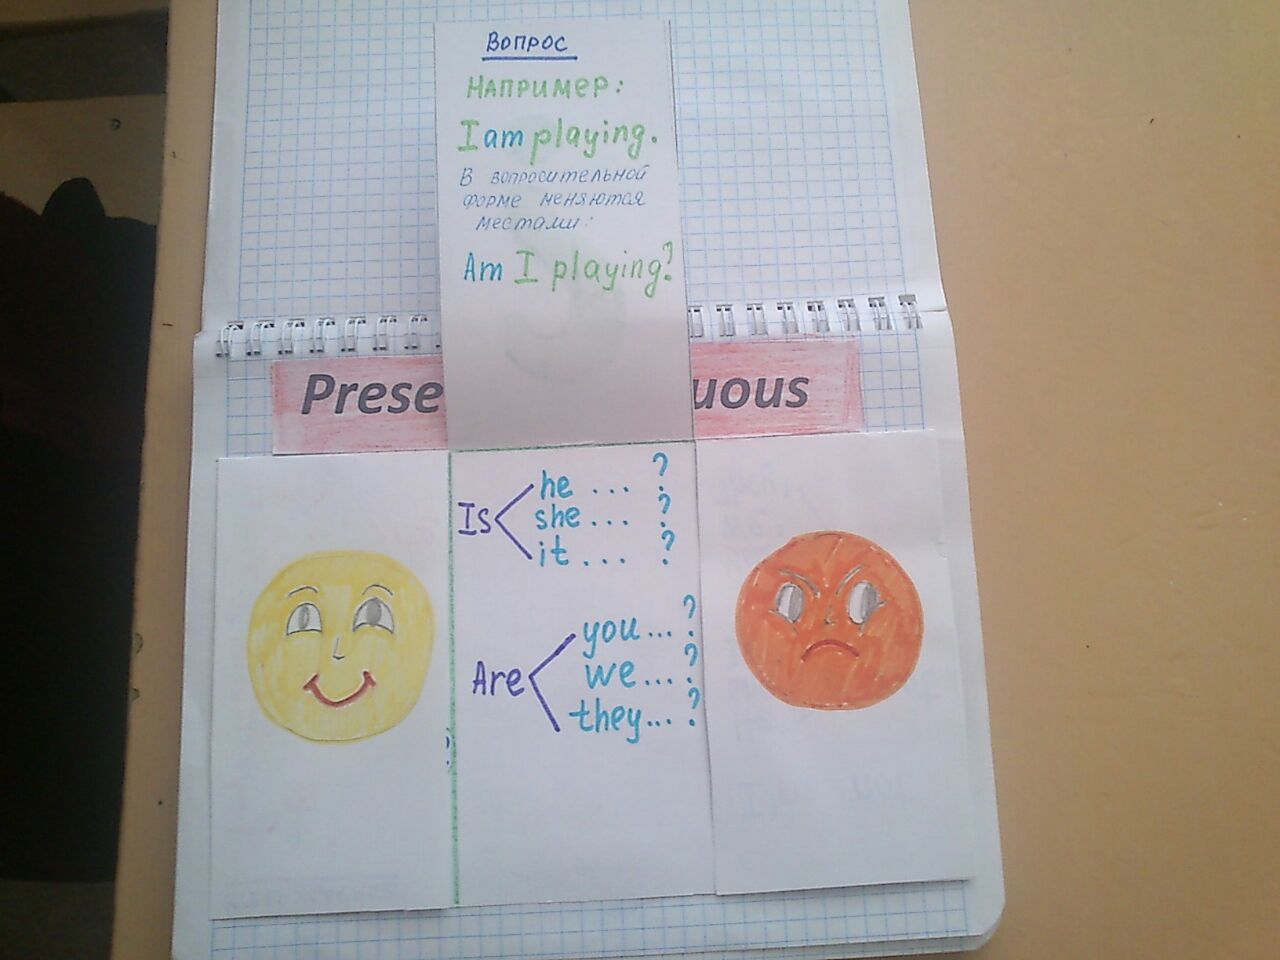 Вопрос
Например:
I am playing.
В вопросительной
форме меняются
местами:
Am I playing?
Prese uous
Is he ... ?
she ... ?
it ... ?
Are you ... ?
we ... ?
they ... ?